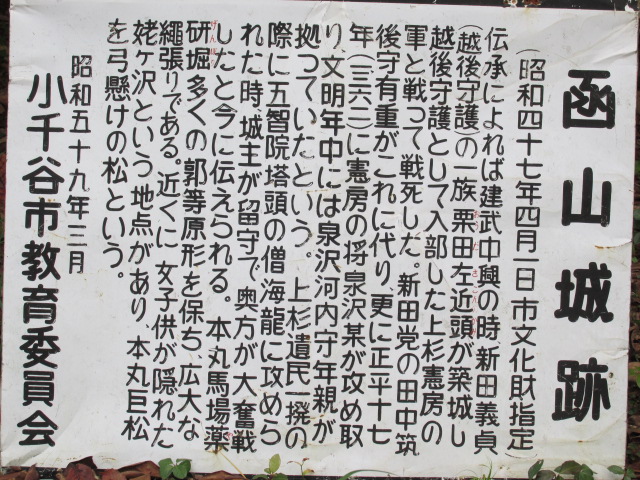 函山城跡
(昭和四十七年四月一日市文化財指定)
伝承によれば建武中興の時、新田義貞
(越後守護)の一族粟田左近頭が築城し
越後守護として入部した上杉憲房の
軍と戦って戦死した。新田党の田中筑
後守有重がこれに代り、更に正平十七
年(一三六二)に憲房の将泉沢某が攻め取
り、文明年中には泉沢河内守年親が
拠っていたという。上杉遺民一揆の
際に五智院塔頭の僧海龍に攻めら
れた時、城主が留守で奥方が大奮戦
したと今に伝えられる。本丸馬場薬
研堀多くの郭等原形を保ち、広大な
縄張りである。近くに女子供が隠れた
姥ヶ沢という地点があり、本丸巨松
を弓懸けの松という。
昭和五十九年三月
小千谷市教育委員会